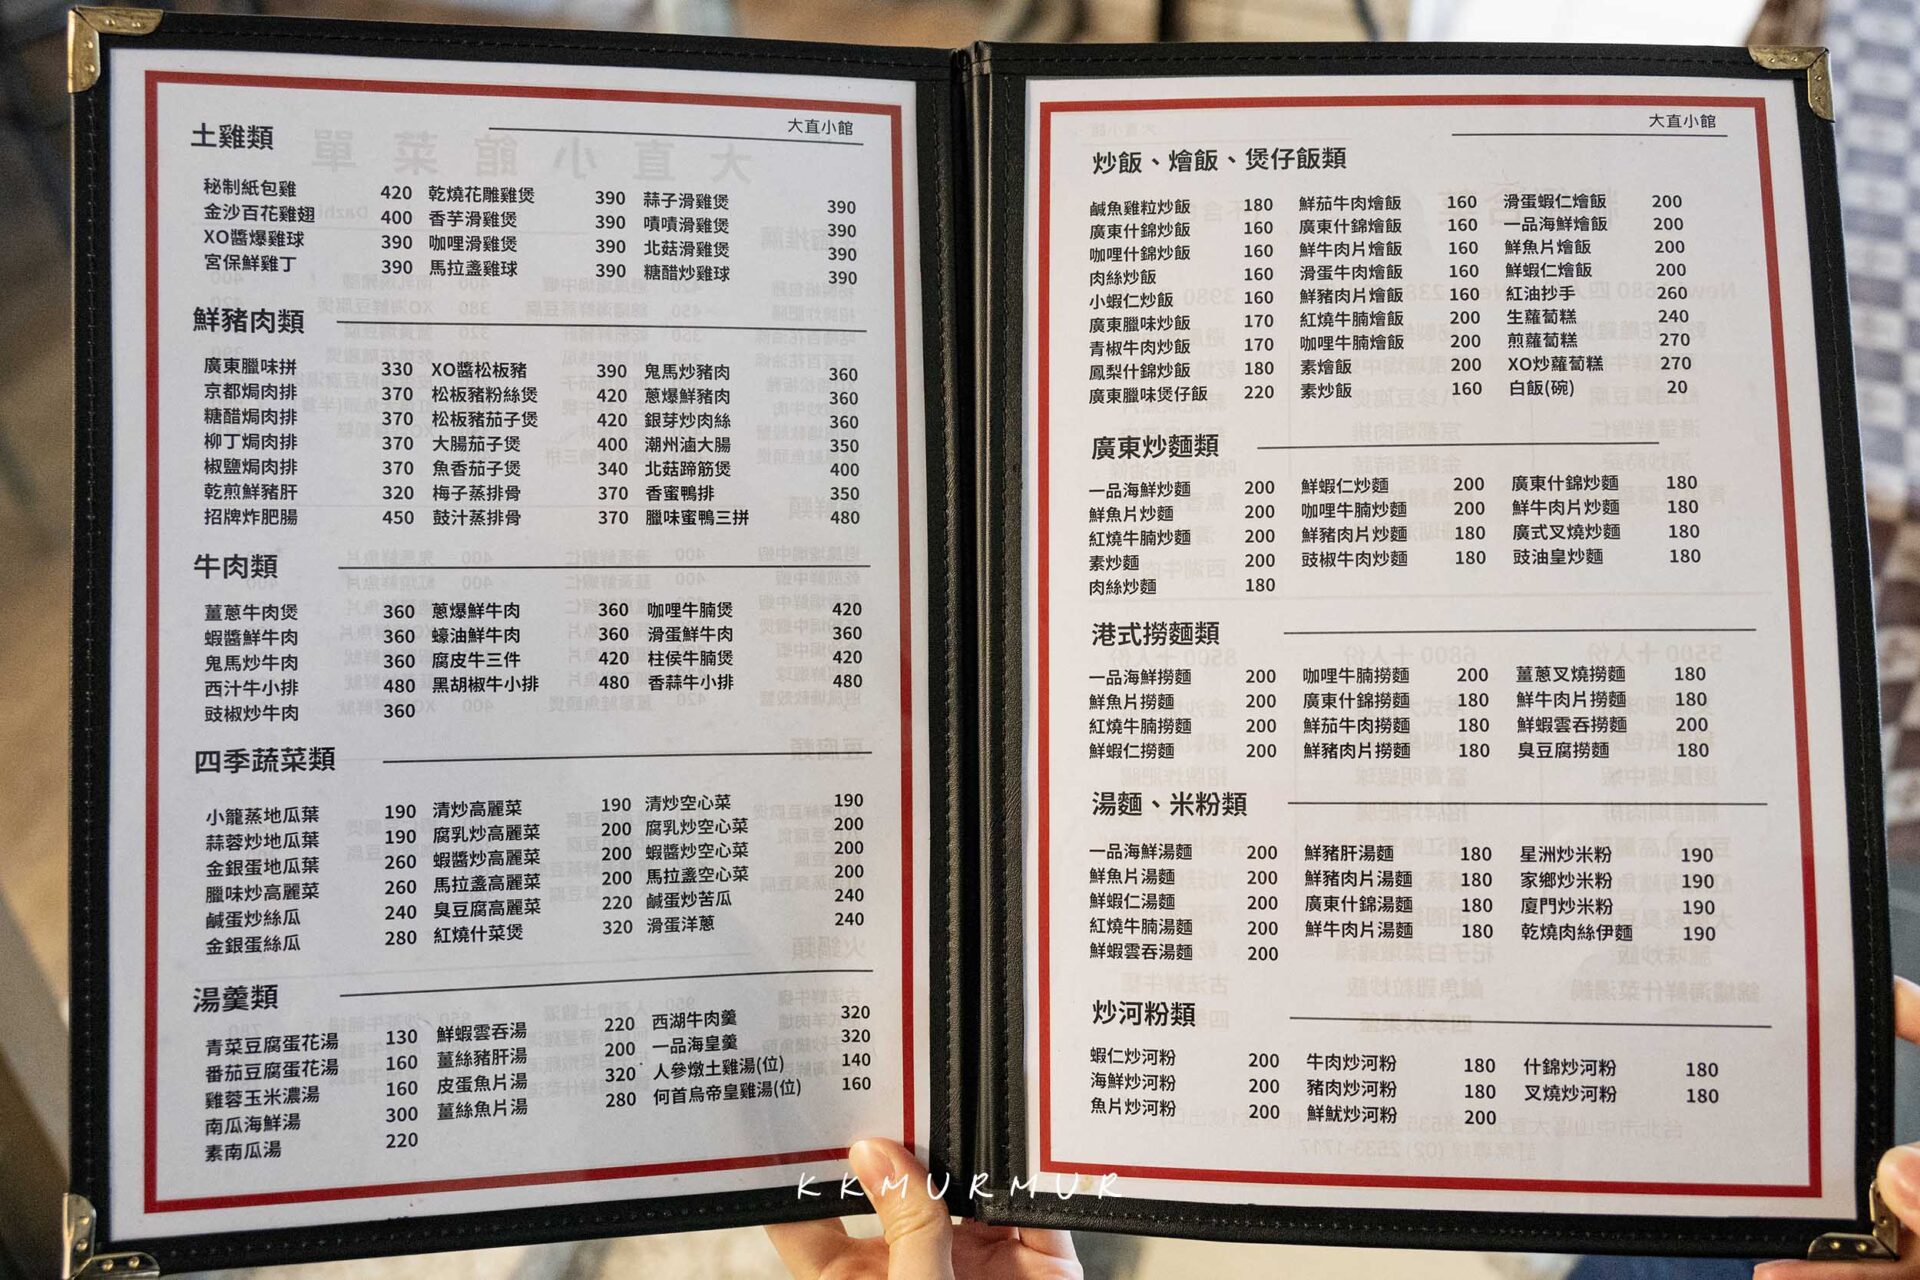 大直小館
土雞類
秘制紙包雞 420 乾燒花雕雞煲 390 蒜子滑雞煲 390
金沙百花雞翅 400 香芋滑雞煲 390 嘖嘖滑雞煲 390
XO醬爆雞球 390 咖哩滑雞煲 390 北菇滑雞煲 390
宮保鮮雞丁 390 馬拉盞雞球 390 糖醋炒雞球 390
鮮豬肉類
廣東臘味拼 330 XO醬松板豬 390 鬼馬炒豬肉 360
京都焗肉排 370 松板豬粉絲煲 420 蔥爆鮮豬肉 360
糖醋焗肉排 370 松板豬茄子煲 420 銀芽炒肉絲 360
柳丁焗肉排 370 大腸茄子煲 400 潮州滷大腸 350
椒鹽焗肉排 370 魚香茄子煲 340 北菇蹄筋煲 400
乾煎鮮豬肝 320 梅子蒸排骨 370 香蜜鴨排 350
招牌炸肥腸 450 鼓汁蒸排骨 370 臘味蜜鴨三拼 480
牛肉類
薑蔥牛肉煲 360 蔥爆鮮牛肉 360 咖哩牛腩煲 420
蝦醬鮮牛肉 360 蠔油鮮牛肉 360 滑蛋鮮牛肉 360
鬼馬炒牛肉 360 腐皮牛三件 420 柱侯牛腩煲 420
西汁牛小排 480 黑胡椒牛小排 480 香蒜牛小排 480
豉椒炒牛肉 360
四季蔬菜類
小籠蒸地瓜葉 190 清炒高麗菜 190 清炒空心菜 190
蒜蓉炒地瓜葉 190 腐乳炒高麗菜 200 腐乳炒空心菜 200
金銀蛋地瓜葉 260 蝦醬炒高麗菜 200 蝦醬炒空心菜 200
臘味炒高麗菜 260 馬拉盞高麗菜 200 馬拉盞空心菜 200
鹹蛋炒絲瓜 240 臭豆腐高麗菜 220 鹹蛋炒苦瓜 240
金銀蛋絲瓜 280 紅燒什菜煲 320 滑蛋洋蔥 240
湯羹類
青菜豆腐蛋花湯 130 鮮蝦雲吞湯 220 西湖牛肉羹 320
番茄豆腐蛋花湯 160 薑絲豬肝湯 200 一品海皇羹 320
雞蓉玉米濃湯 160 皮蛋魚片湯 320 人參燉土雞湯(位) 140
南瓜海鮮湯 300 薑絲魚片湯 280 何首烏帝皇雞湯(位) 160
素南瓜湯 220
大直小館
炒飯、燴飯、煲仔飯類
鹹魚雞粒炒飯 180 鮮茄牛肉燴飯 160 滑蛋蝦仁燴飯 200
廣東什錦炒飯 160 廣東什錦燴飯 160 一品海鮮燴飯 200
咖哩什錦炒飯 160 鮮牛肉片燴飯 160 鮮魚片燴飯 200
肉絲炒飯 160 滑蛋牛肉燴飯 160 鮮蝦仁燴飯 200
小蝦仁炒飯 160 鮮豬肉片燴飯 160 紅油抄手 260
廣東臘味炒飯 170 紅燒牛腩燴飯 200 生蘿蔔糕 240
青椒牛肉炒飯 170 咖哩牛腩燴飯 200 煎蘿蔔糕 270
鳳梨什錦炒飯 180 素燴飯 200 XO炒蘿蔔糕 270
廣東臘味煲仔飯 220 素炒飯 160 白飯(碗) 20
廣東炒麵類
一品海鮮炒麵 200 鮮蝦仁炒麵 200 廣東什錦炒麵 180
鮮魚片炒麵 200 咖哩牛腩炒麵 200 鮮牛肉片炒麵 180
紅燒牛腩炒麵 200 鮮豬肉片炒麵 180 廣式叉燒炒麵 180
素炒麵 200 豉椒牛肉炒麵 180 豉油皇炒麵 180
肉絲炒麵 180
港式撈麵類
一品海鮮撈麵 200 咖哩牛腩撈麵 200 薑蔥叉燒撈麵 180
鮮魚片撈麵 200 廣東什錦撈麵 180 鮮牛肉片撈麵 180
紅燒牛腩撈麵 200 鮮茄牛肉撈麵 180 鮮蝦雲吞撈麵 200
鮮蝦仁撈麵 200 鮮豬肉片撈麵 180 臭豆腐撈麵 180
湯麵、米粉類
一品海鮮湯麵 200 鮮豬肝湯麵 180 星洲炒米粉 190
鮮魚片湯麵 200 鮮豬肉片湯麵 180 家鄉炒米粉 190
鮮蝦仁湯麵 200 廣東什錦湯麵 180 廈門炒米粉 190
紅燒牛腩湯麵 200 鮮牛肉片湯麵 180 乾燒肉絲伊麵 190
鮮蝦雲吞湯麵 200
炒河粉類
蝦仁炒河粉 200 牛肉炒河粉 180 什錦炒河粉 180
海鮮炒河粉 200 豬肉炒河粉 180 叉燒炒河粉 180
魚片炒河粉 200 鮮魷炒河粉 200
KKMURMUR